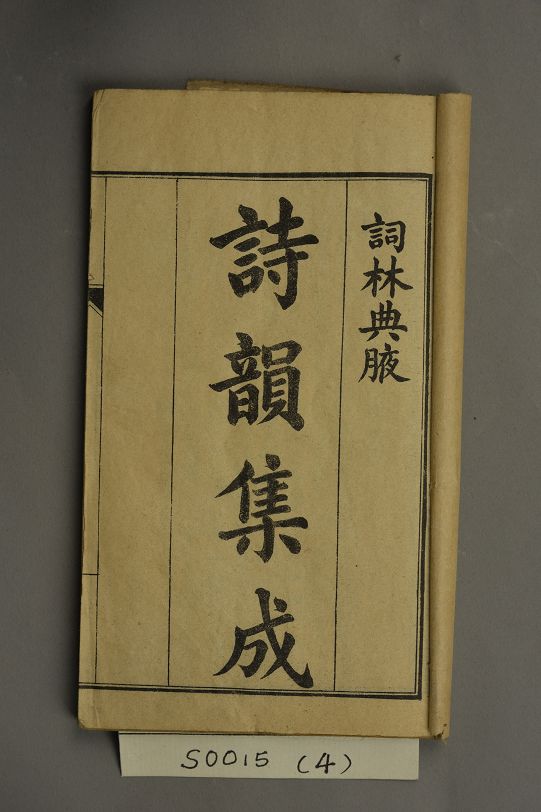 詞林典腋
詩韻集成
S0015 (4)